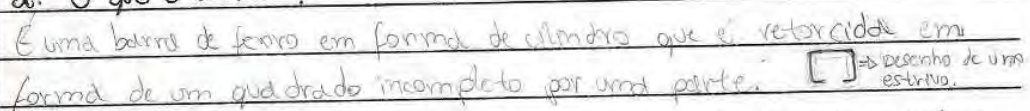 É uma barra de ferro em forma de cilindro que é retorcida em
forma de um quadrado incompleto por uma parte.
⇒ Desenho de uma
estrivo.